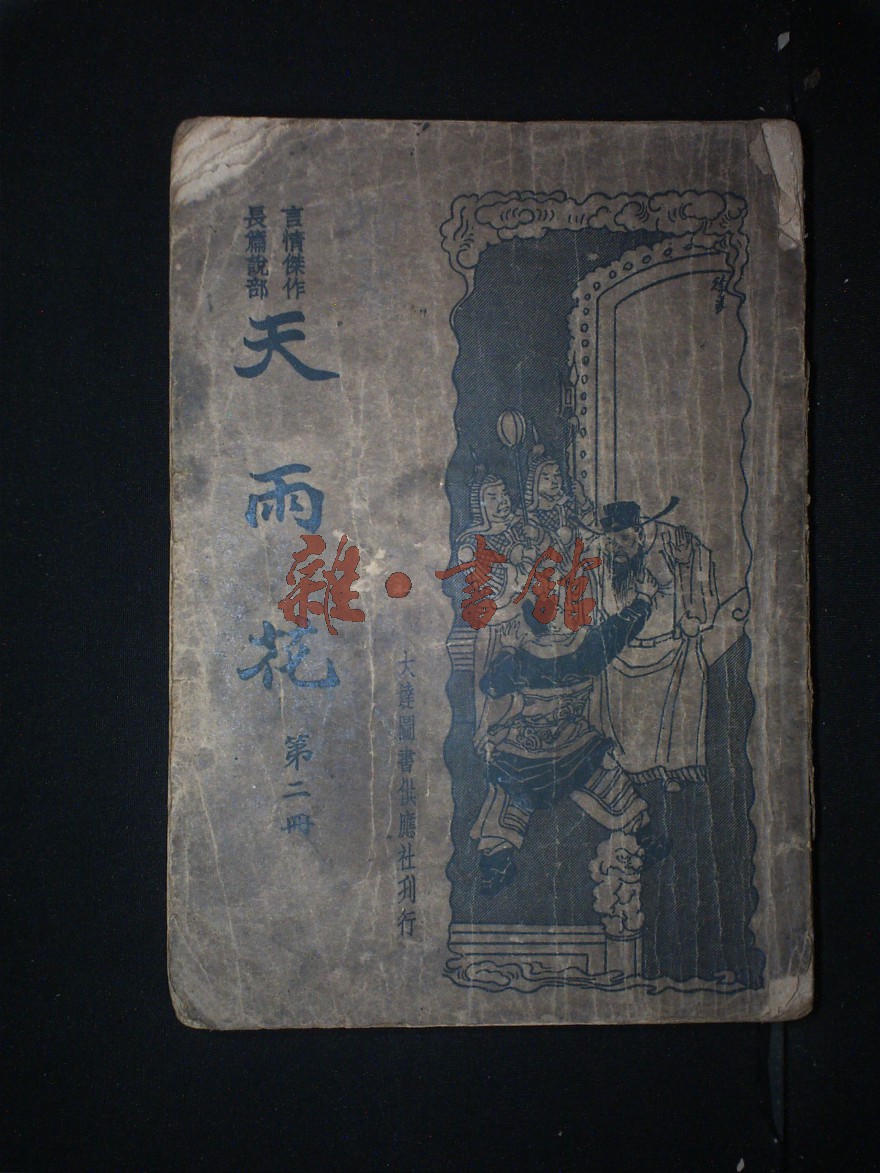 言情傑作
長篇說部
天雨花
第二冊
大達圖書供應社刊行
雜·書館